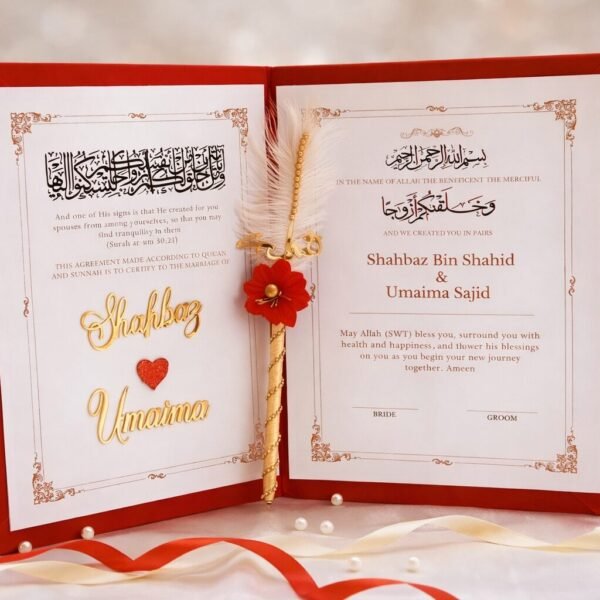 And one of His signs is that He created for you
spouses from among yourselves, so that you may
find tranquility in them
(Surah ar-um 30:21)
THIS AGREEMENT MADE ACCORDING TO QURAN
AND SUNNAH IS TO CERTIFY TO THE MARRIAGE OF
Shahbaz
Umaima
بسم الله الرحمن الرحيم
IN THE NAME OF ALLAH THE BENEFICENT THE MERCIFUL
وَخَلَقْنَاكُمْ أَزْوَاجًا
AND WE CREATED YOU IN PAIRS
Shahbaz Bin Shahid
&
Umaima Sajid
May Allah (SWT) bless you, surround you with
health and happiness, and flower his blessings
on you as you begin your new journey
together. Ameen
BRIDE GROOM